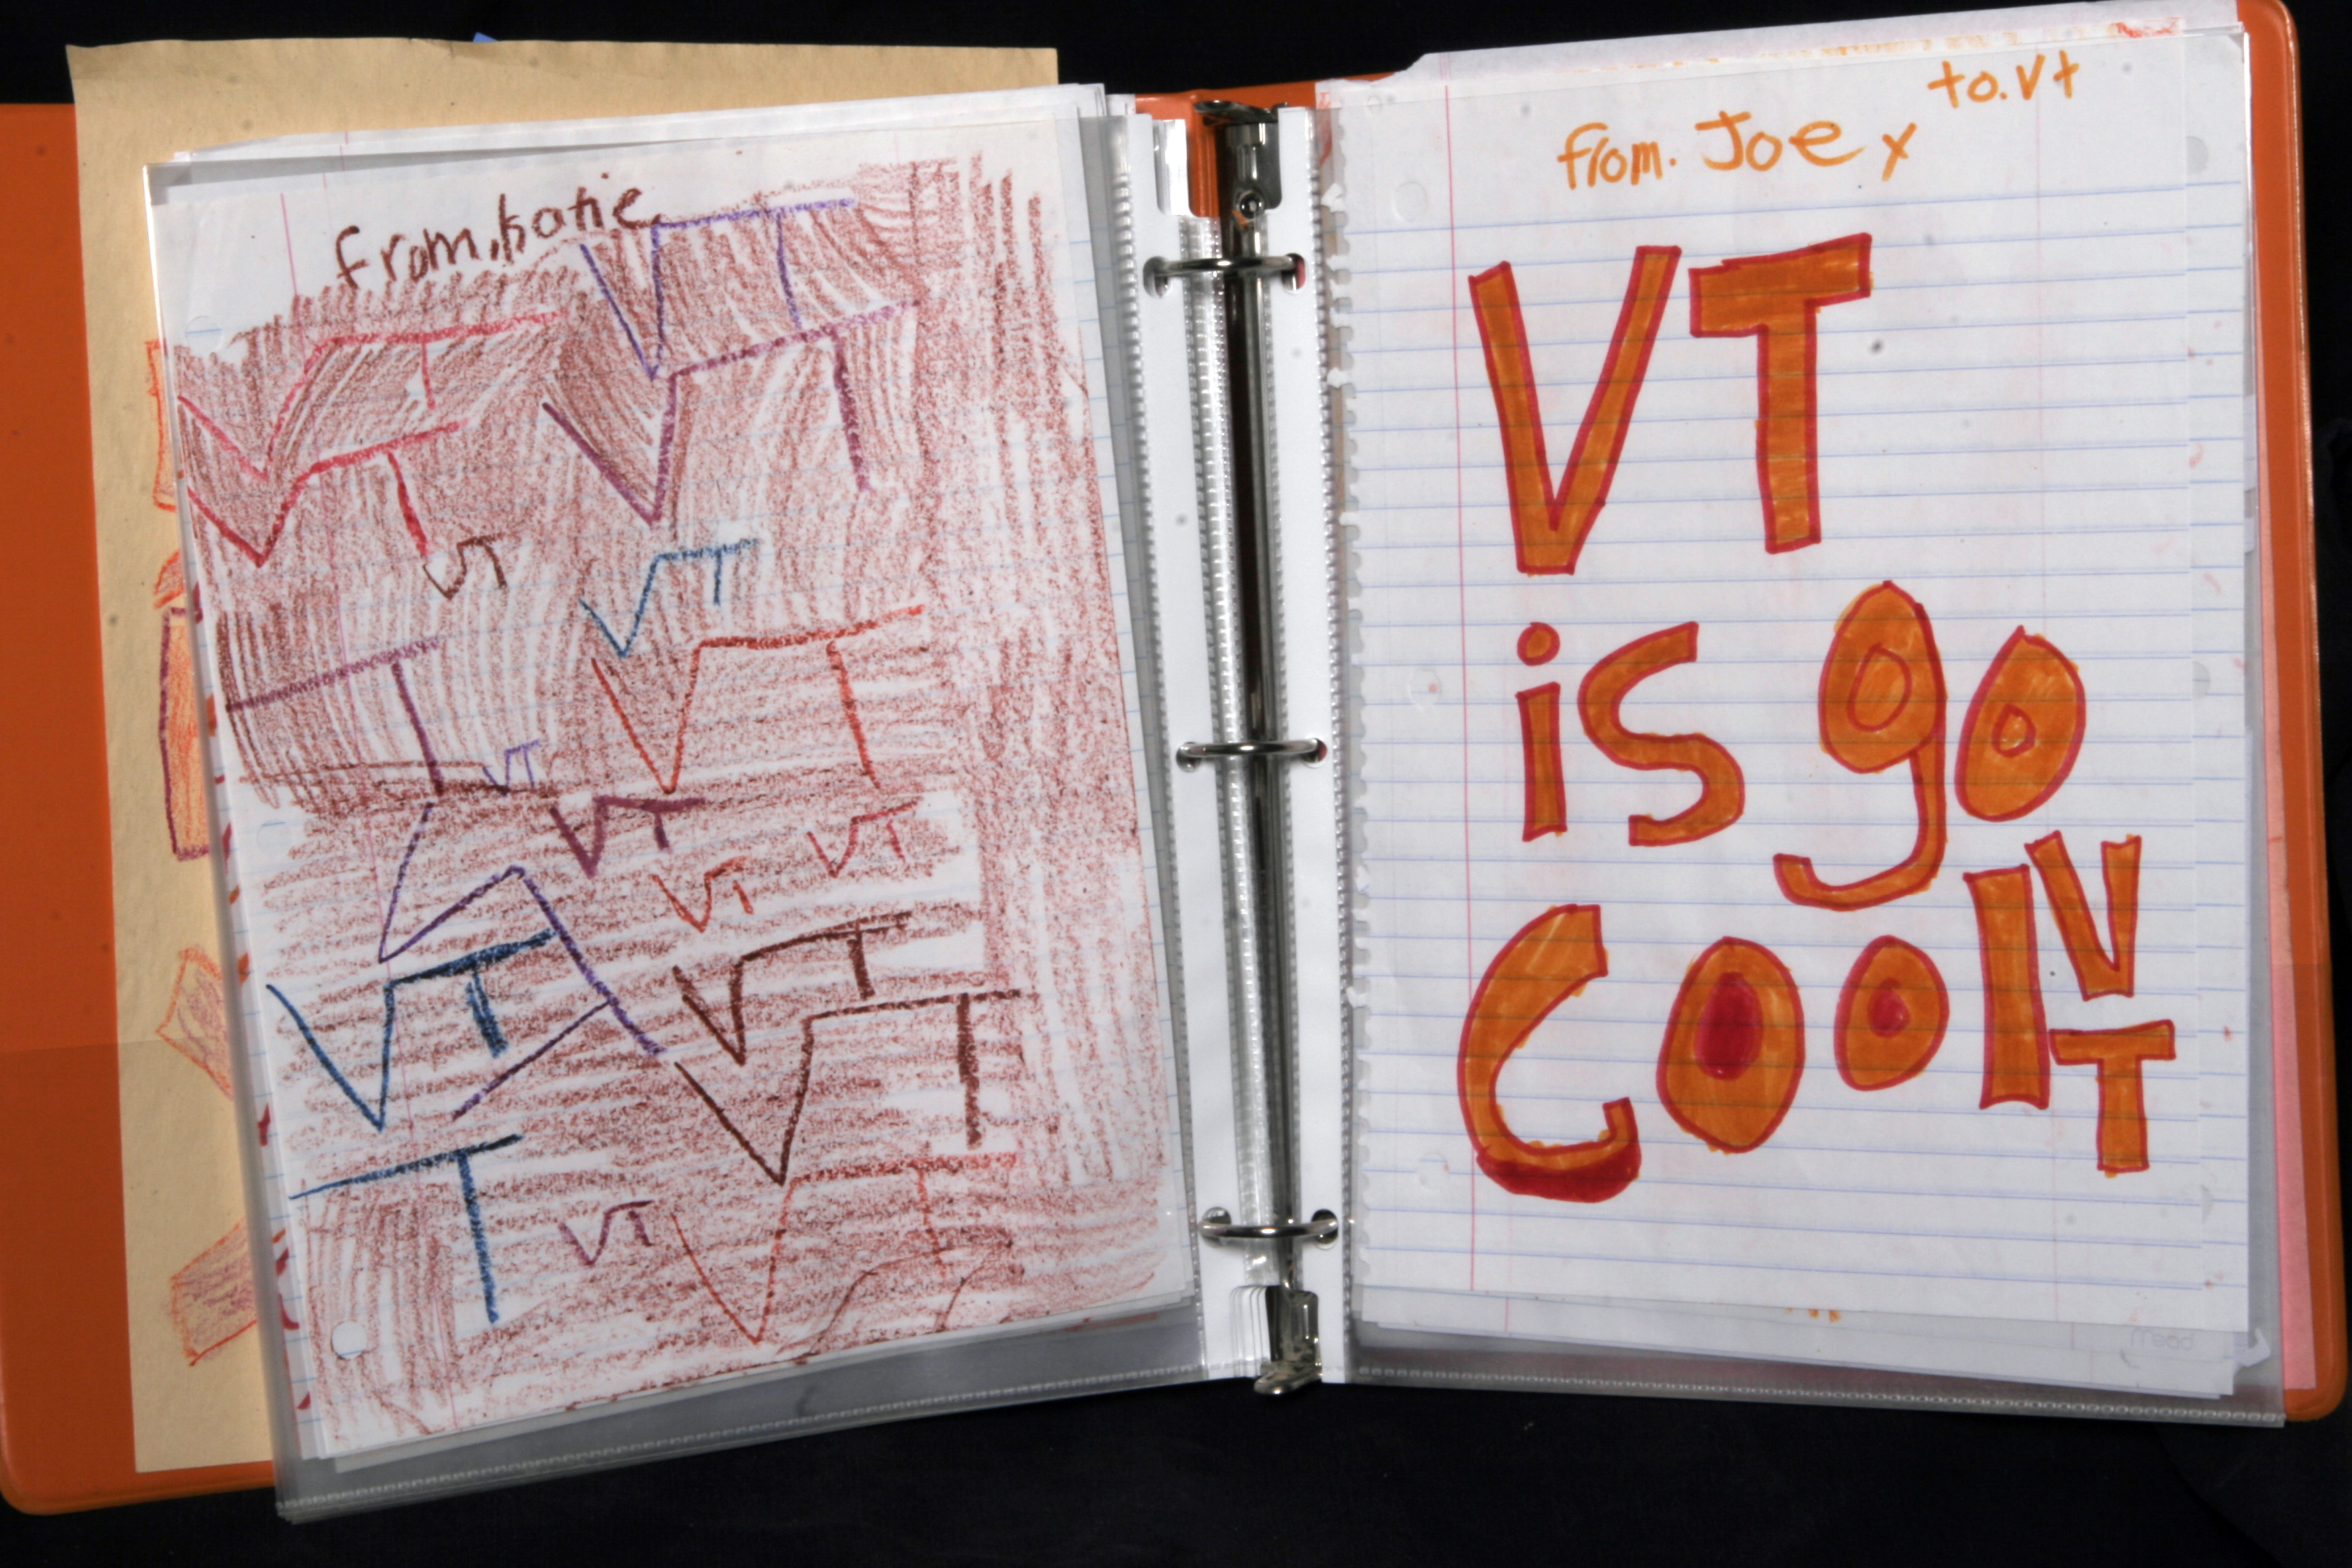 from, katie
VT
VT
VT
VT
VT
VT
T
VT
VT
VT
VT
VT
VT
VT
VT
T
VT
VT
to. Vt
from. Joey
VT
is go
Cool
V
T